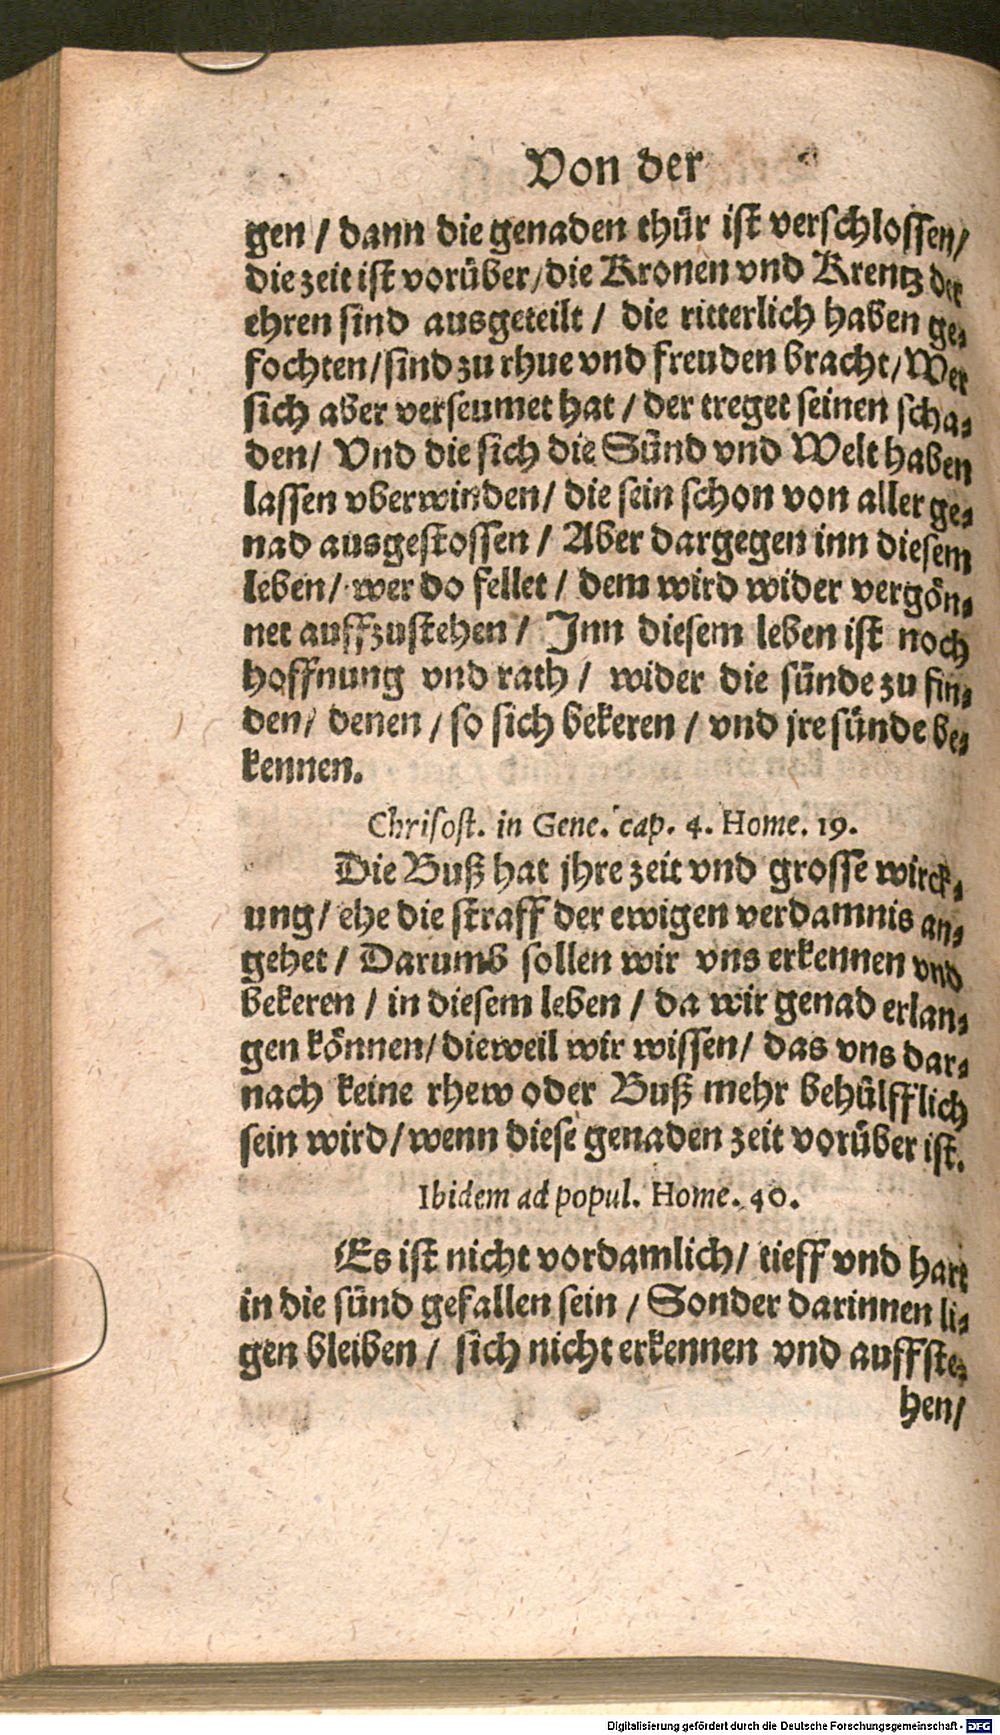 Von der
gen / dann die genaden thür ist verschlossen/
die zeit ist vorüber/die Kronen vnd Krentz der
ehren sind ausgeteilt / die ritterlich haben ge-
fochten/sind zu rhue vnd freuden bracht/Wer
sich aber verseumet hat / der treget seinen scha-
den/ Vnd die sich die Sünd vnd Welt haben
lassen vberwinden/ die sein schon von aller ge-
nad ausgestossen / Aber dargegen inn diesem
leben/ wer do fellet / dem wird wider vergön-
net auffzustehen / Inn diesem leben ist noch
hoffnung vnd rath / wider die sünde zu fin-
den/ denen / so sich bekeren / vnd jre sünde be-
kennen.
Chrisost. in Gene. cap. 4. Home. 19.
Die Buß hat jhre zeit vnd grosse wirck-
ung/ ehe die straff der ewigen verdamnis an-
gehet / Darumb sollen wir vns erkennen vnd
bekeren / in diesem leben / da wir genad erlan-
gen können/ dieweil wir wissen/ das vns dar-
nach keine rhew oder Buß mehr behülfflich
sein wird/wenn diese genaden zeit vorüber ist.
Ibidem ad popul. Home. 40.
Es ist nicht vordamlich/ tieff vnd hart
in die sünd gefallen sein / Sonder darinnen li-
gen bleiben / sich nicht erkennen vnd auffste-
hen/
Digitalisierung gefördert durch die Deutsche Forschungsgemeinschaft - DFG